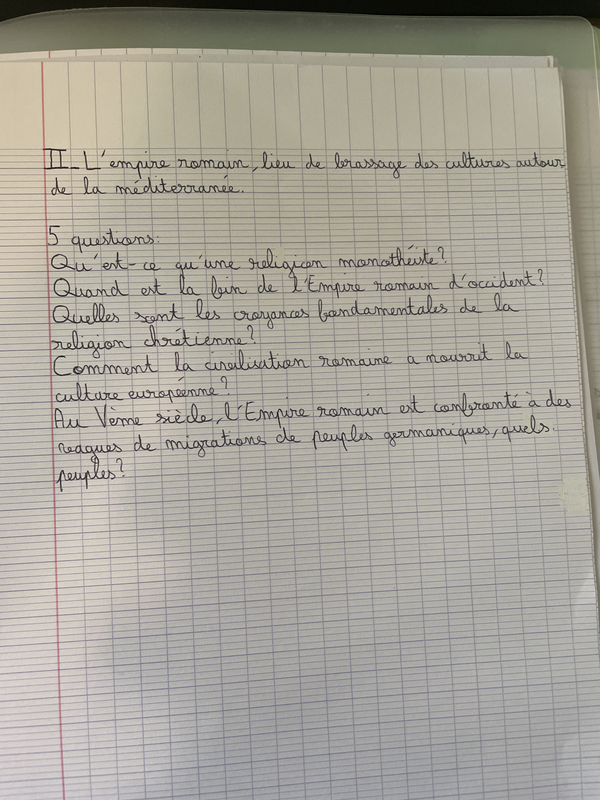 II_ L'empire romain, lieu de brassage des cultures autour
de la méditerranée.
5 questions:
Qu'est-ce qu'une religion monothéiste?
Quand est la fin de l'Empire romain d'occident?
Quelles sont les croyances fondamentales de la
religion chrétienne?
Comment la civilisation romaine a nourrit la
culture européenne?
Au Vème siècle, l'Empire romain est confronté à des
vagues de migrations de peuples germaniques, quels
peuples?